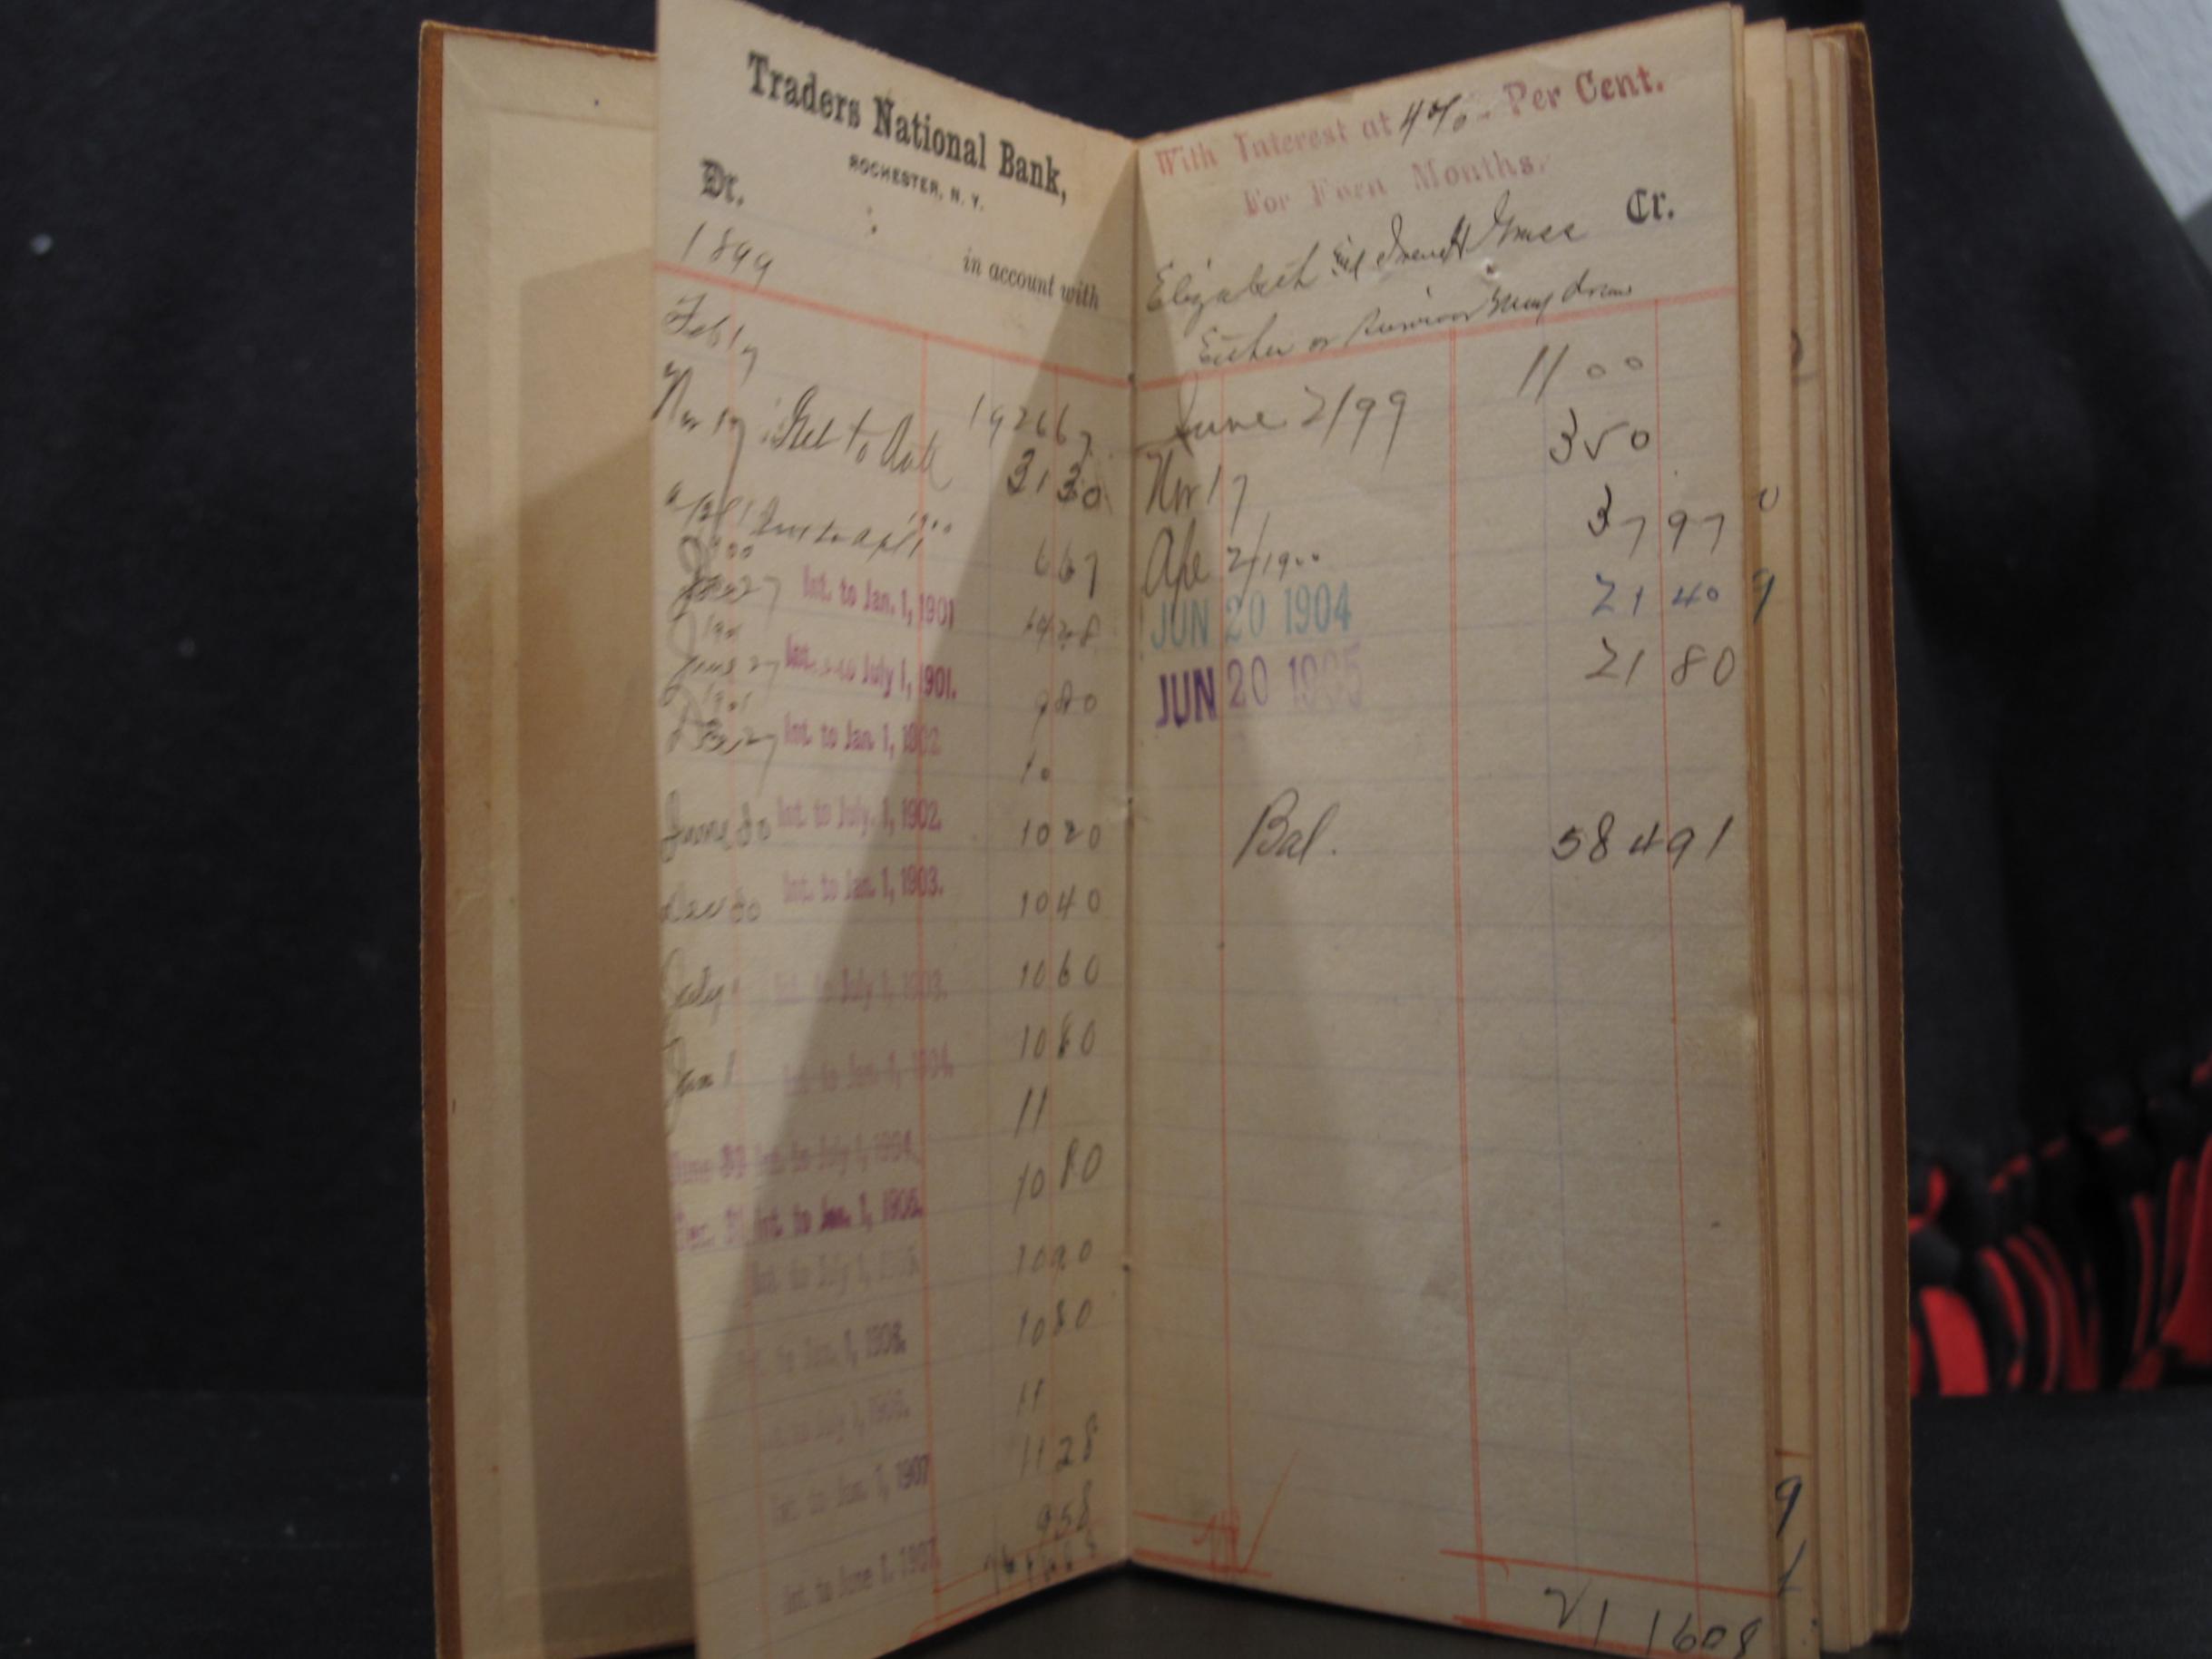 Traders National Bank,
ROCHESTER, N. Y.
Dr.
1899
in account with
Feb 17 192667
Nov 17 Int to date 3130
Int to Apl 1 1900 667
Int. to Jan. 1, 1901
June 27 Int. to July 1, 1901. 980
1901
Dec 27 Int. to Jan. 1, 1902 10
June 30 Int. to July. 1, 1902. 1020
Dec 30 Int. to Jan. 1, 1903. 1040
July 1 Int. to July 1, 1903. 1060
Jan 1 Int. to Jan. 1, 1904. 1080
11
June 30 Int. to July 1, 1904. 1080
Dec. 31 Int. to Jan. 1, 1905.
Int. to July 1, 1905. 1090
Int. to Jan. 1, 1906. 1080
July 1, 1906. 11
Int. to Jan. 1, 1907 1128
958
Int. to June 1, 1907.
With Interest at 4% Per Cent.
For Even Months.
Cr.
Elizabeth and
Either or Survivor may draw
June 2/99 1100
Nov 17 350
Apr 2/1900 3797
JUN 20 1904 2140
JUN 20 1905 2180
Bal. 58491
211608